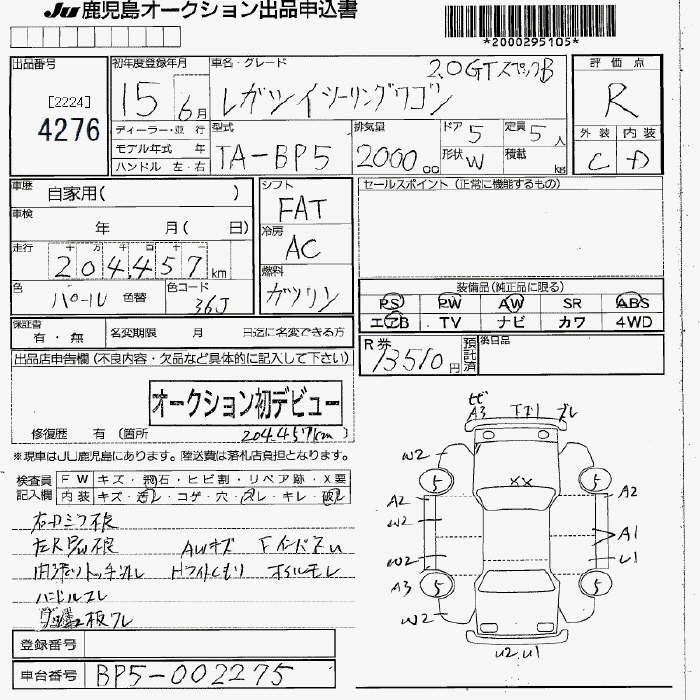 Ju 鹿児島オークション出品申込書
*2000295105*
出品番号
[2224]
4276
初年度登録年月
15 6月
車名・グレード
2.0GTスペックB
レガツィツーリングワゴン
評価点
R
ディーラー・並行
モデル年式 年
ハンドル 左・右
型式
TA-BP5
排気量
2000 cc
ドア 5
形状 W
定員 5 人
積載 kg
外装 内装
C D
車歴
自家用( )
車検
年 月( 日)
走行
十 万 千 百 十 一
204457 km
色
パール 色替
色コード
36J
シフト
FAT
冷房
AC
燃料
ガソリン
セールスポイント (正常に機能するもの)
装備品(純正品に限る)
PS PW AW SR ABS
エアB TV ナビ カワ 4WD
保証書
有・無
名変期限 月 日迄に名変できる方
R券
13510円
預託済
後日品
出品店申告欄 (不良内容・欠品など具体的に記入して下さい)
オークション初デビュー
修復歴 有 (箇所 204.457km )
※現車はJU鹿児島にあります。陸送費は落札店負担となります。
検査員
記入欄
FW キズ・飛石・ヒビ割・リペア跡・X要
内装 キズ・汚レ・コゲ・穴・スレ・キレ・破レ
右ドミラ不良
左RP/W不良 AWキズ
ハンドルスレ
登録番号
車台番号 BP5-002275
A3
W2
5 5
XX
A2 A2
W2
A1
W2 U1
A3 5 5
W2
U2 U1